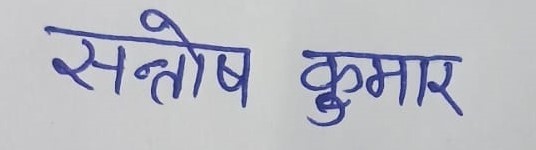 सन्तोष कुमार